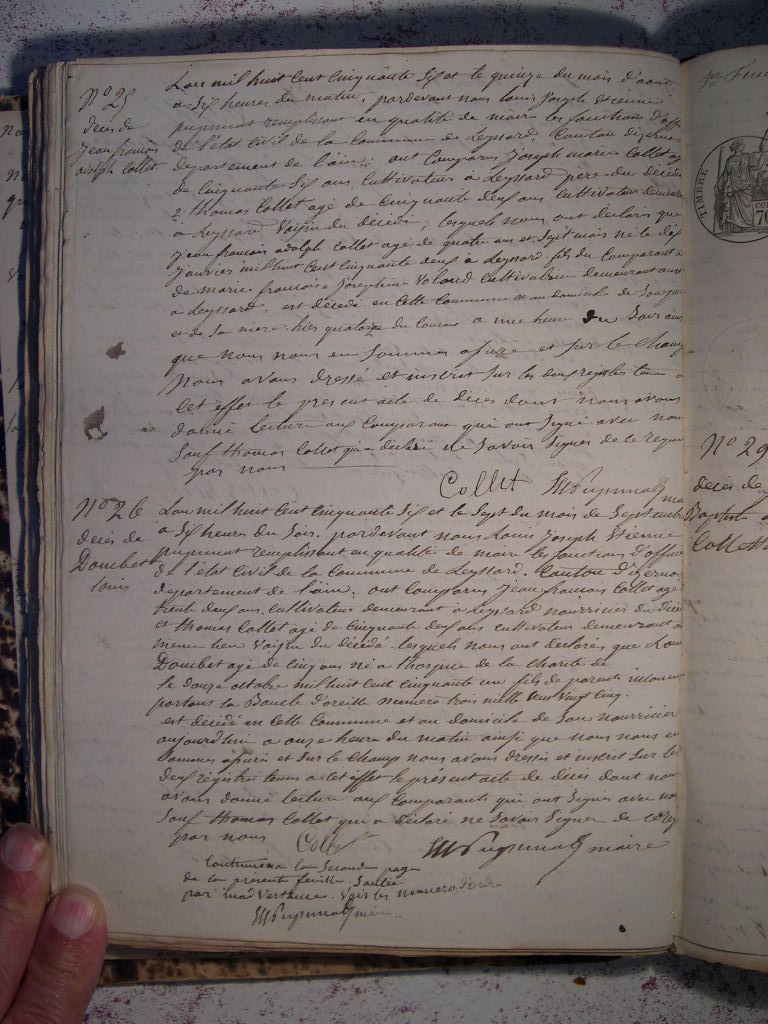 N° 25
décès de
Jean françois
adolph Collet
L'an mil huit cent cinquante six et le quinze du mois d'aout
a six heures du matin, pardevant nous Louis Joseph Etienne
remplissant en qualité de maire les fonctions d'off
de l'état civil de la Commune de Leyssard, Canton d'izerno
departement de l'ain; ont comparu Joseph marie Collet ag
de cinquante six ans, cultivateur a Leyssard père du décédé
2° thomas Collet agé de cinquante deux ans cultivateur demeura
a Leyssard voisin du décédé, lesquels nous ont déclaré que
Jean francois adolph Collet agé de quatre ans et sept mois né le dix
Janvier mil huit cent cinquante deux a Leyssard fils du comparant e
de marie françoise Josephine Voland cultivateur demeurant aussi
a Leyssard. est décédé en cette commune au domicile de son pere
et de sa mere. hier quatorze du courant a une heure du soir ainsi
que nous nous en sommes assuré et sur le champ
nous avons dressé et inscrit sur les deux registres tenus a
cet effet le present acte de décès dont nous avons
donné lecture aux comparans qui ont signé avec nou
sauf thomas Collet qui a déclaré ne savoir signer de ce requi
par nous
Collet
N° 26
décès de
Doubet
louis
L'an mil huit cent cinquante six et le sept du mois de septembre
a six heures du soir. pardevant nous Louis Joseph Etienne
remplissant en qualité de maire les fonctions d'officie
de l'état civil de la Commune de Leyssard. Canton d'izernor
departement de l'ain. ont comparus Jean francois Collet agé
trente deux ans. cultivateur demeurant a Leyssard nourricier du décéd
et thomas Collet agé de cinquante deux ans cultivateur demeurant a
meme lieu voisin du décédé. lesquels nous ont déclaré que Loui
Doubet agé de cinq ans né a l'hospice de la charité de
le douze octobre mil huit cent cinquante un fils de parents inconnu
portant la Boucle d'oreille numero trois mille vingt cinq.
est décédé en cette commune et au domicile de son nourricier
aujourdhui a onze heure du matin ainsi que nous nous en
sommes assurés et sur le champ nous avons dressés et inscrit sur les
deux registres tenus a cet effet le présent acte de décès dont nous
avons donné lecture aux comparants qui ont signer avec nou
sauf thomas Collet qui a déclaré ne savoir signer de ce req
par nous
Collet
maire
Continuera la seconde page
de la présente feuille sautée
par inadvertance. Voir les numero d'ordre
maire
TIMBRE
N° 29
décès de
Baptist
Collet